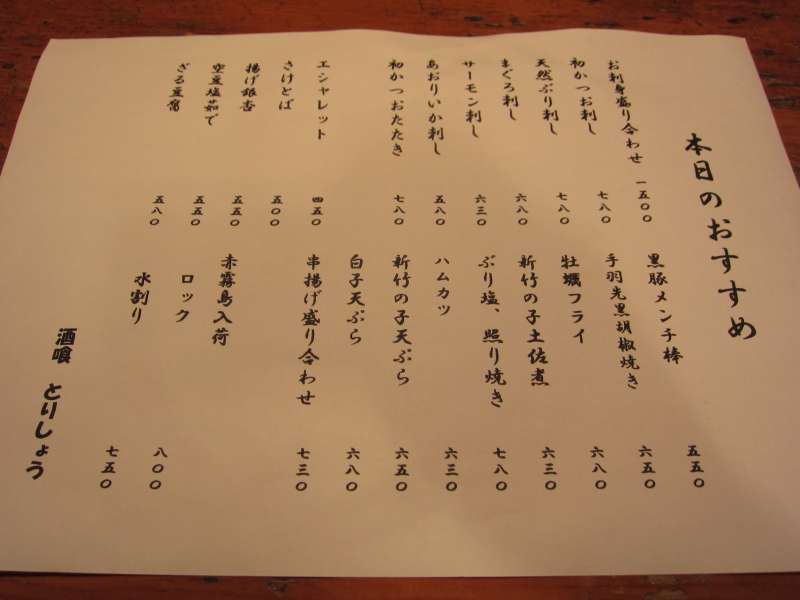 本日のおすすめ
お刺身盛り合わせ 一五〇〇
初かつお刺し 七八〇
天然ぶり刺し 七八〇
まぐろ刺し 六八〇
サーモン刺し 六三〇
あおりいか刺し 五八〇
初かつおたたき 七八〇
エシャレット 四五〇
さけとば 五〇〇
揚げ銀杏 五五〇
空豆塩茹で 五五〇
ざる豆腐 五八〇
黒豚メンチ棒 五五〇
手羽先黒胡椒焼き 六五〇
牡蠣フライ 六八〇
新竹の子土佐煮 六三〇
ぶり塩、照り焼き 七八〇
ハムカツ 六三〇
新竹の子天ぷら 六五〇
白子天ぷら 六八〇
串揚げ盛り合わせ 七三〇
赤霧島入荷
ロック 八〇〇
水割り 七五〇
酒喰 とりしょう